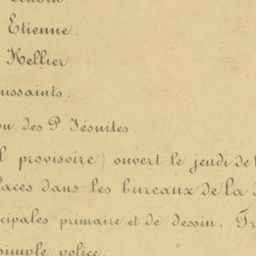 Etienne.
Hellier
ussaints.
ou des P. Jésuites
l provisoire) ouvert le jeudi de
laces dans les bureaux de la
cipales primaire et de dessin. Tr
simple police